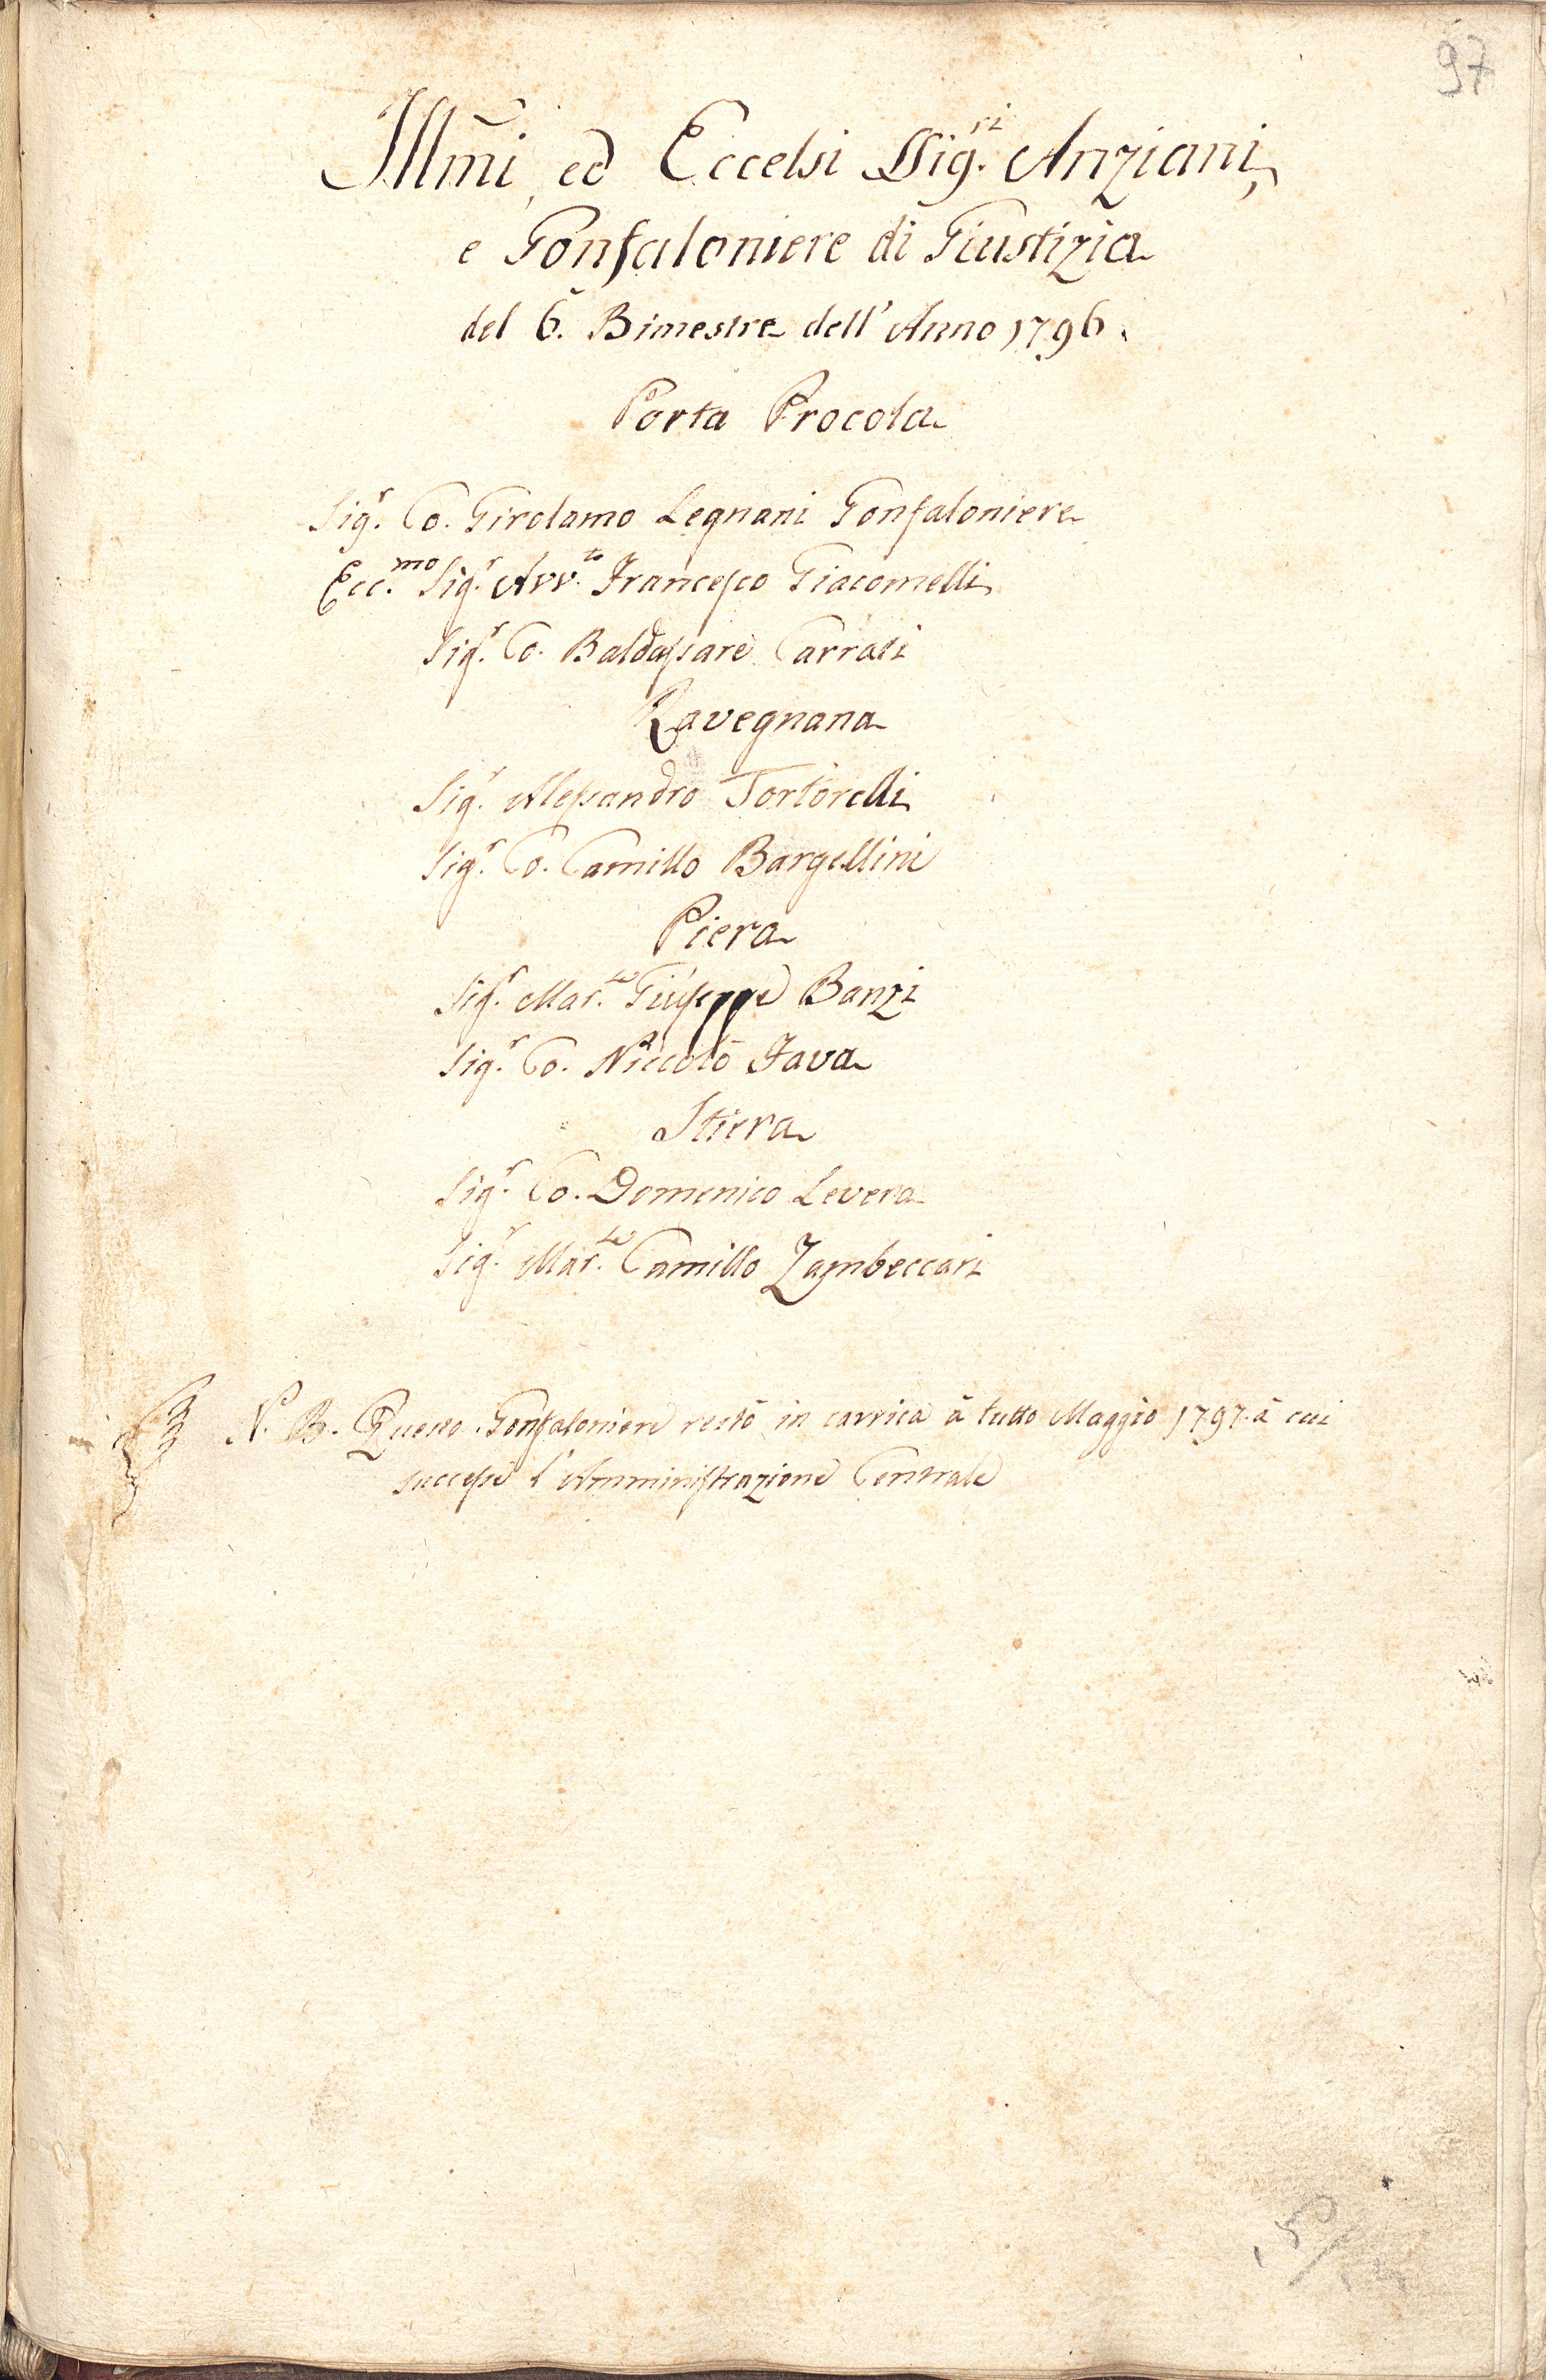 97
Illmi, ed Eccelsi SSig.ri Anziani,
e Gonfaloniere di Giustizia
del 6.° Bimestre dell'Anno 1796.
Porta Procola
Sig.r Co. Girolamo Legnani Gonfaloniere
Ecc.mo Sig.r Avv.to Francesco Giacomelli
Sig.r Co. Baldassare Carrati
Ravegnana
Sig.r Alessandro Tortorelli
Sig.r Co. Camillo Bargellini
Piera
Sig.r Mar.se Giuseppe Banzi
Sig.r Co. Niccolò Fava
Stiera
Sig.r Co. Domenico Levera
Sig.r Mar.se Camillo Zambeccari
N. B. Questo Gonfaloniere restò in carrica à tutto Maggio 1797. à cui
successe l'Amministrazione Centrale